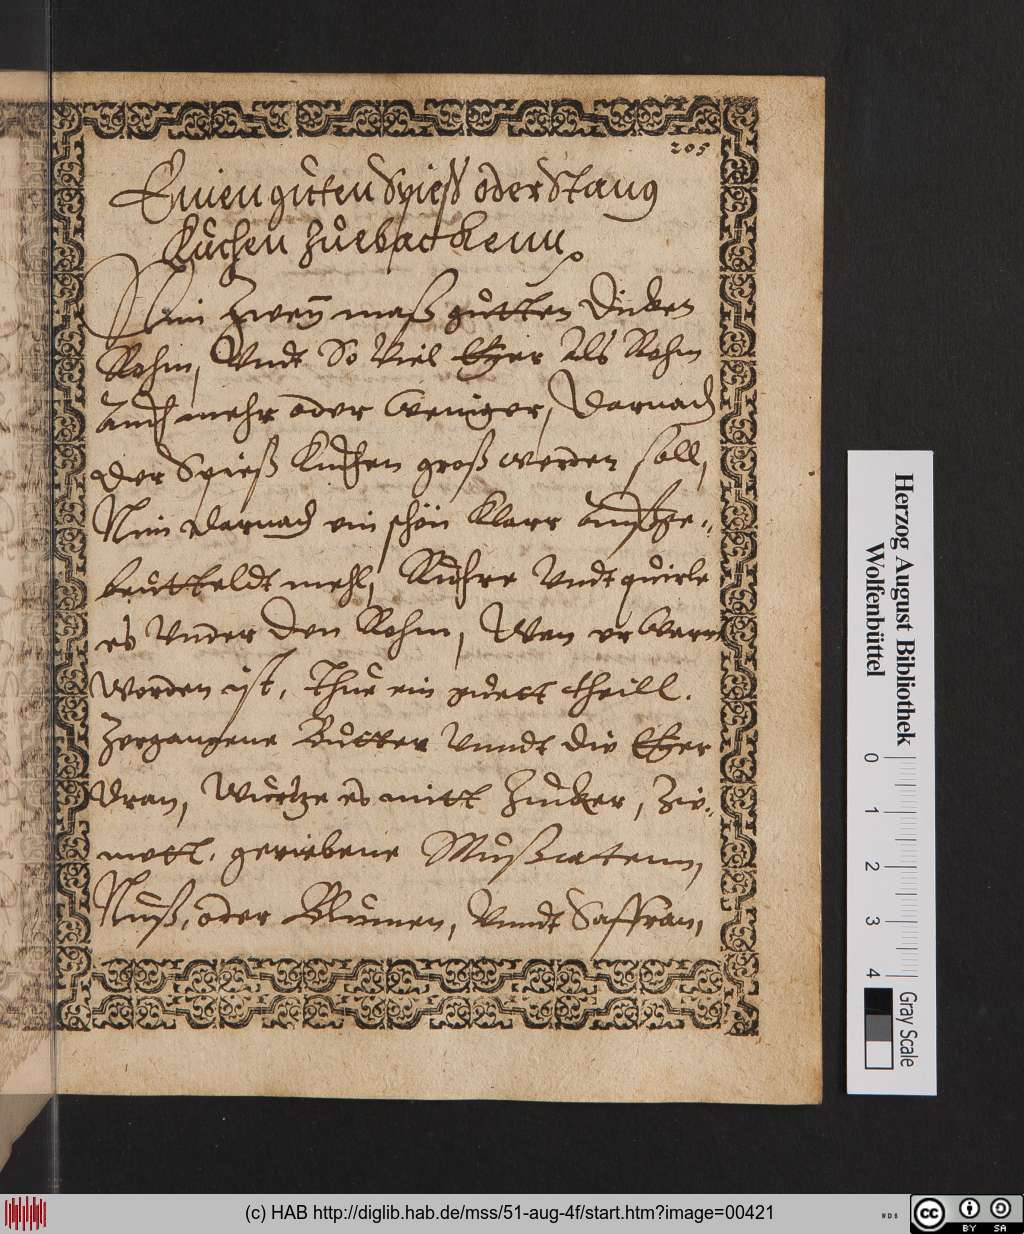 205
Einen guten Spieß oder Stang
Kuchen zue backenn.
Nim zweÿ maß gutten dicken
Rohm, Vndt So Viel Eÿer Als Rohm
Auch mehr oder weniger, Darnach
der Spieß kuchen groß werden soll,
Nim darnach ein schön klarr außge-
beutteldt mehl, Ruhre Vndt quirle
es Vnder den Rohm, Wen er warm
worden ist, Thue ein guett theill.
Zergangene Butter Vnndt die Eÿer
dran, Wurtze es mitt Zucker, Zim-
mett. geriebene Mußcatenn,
Nuß, oder Blumen, Vnndt Saffran,
Herzog August Bibliothek
Wolfenbüttel
0 1 2 3 4
Gray Scale
(c) HAB http://diglib.hab.de/mss/51-aug-4f/start.htm?image=00421
WDB
cc
BY SA